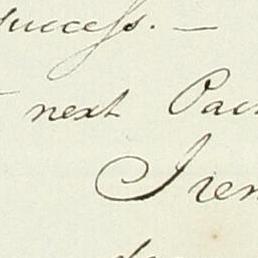 success. —
next Pac
Iren